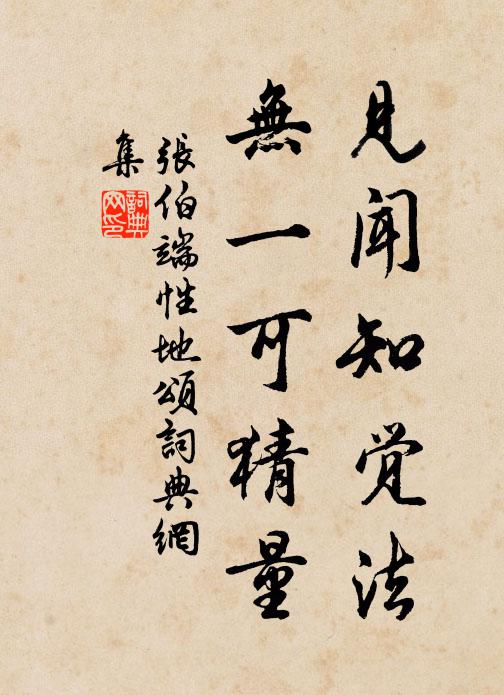 見聞知覺法
無一可猜量
張伯端性地頌詞典網
集
詞典
网印